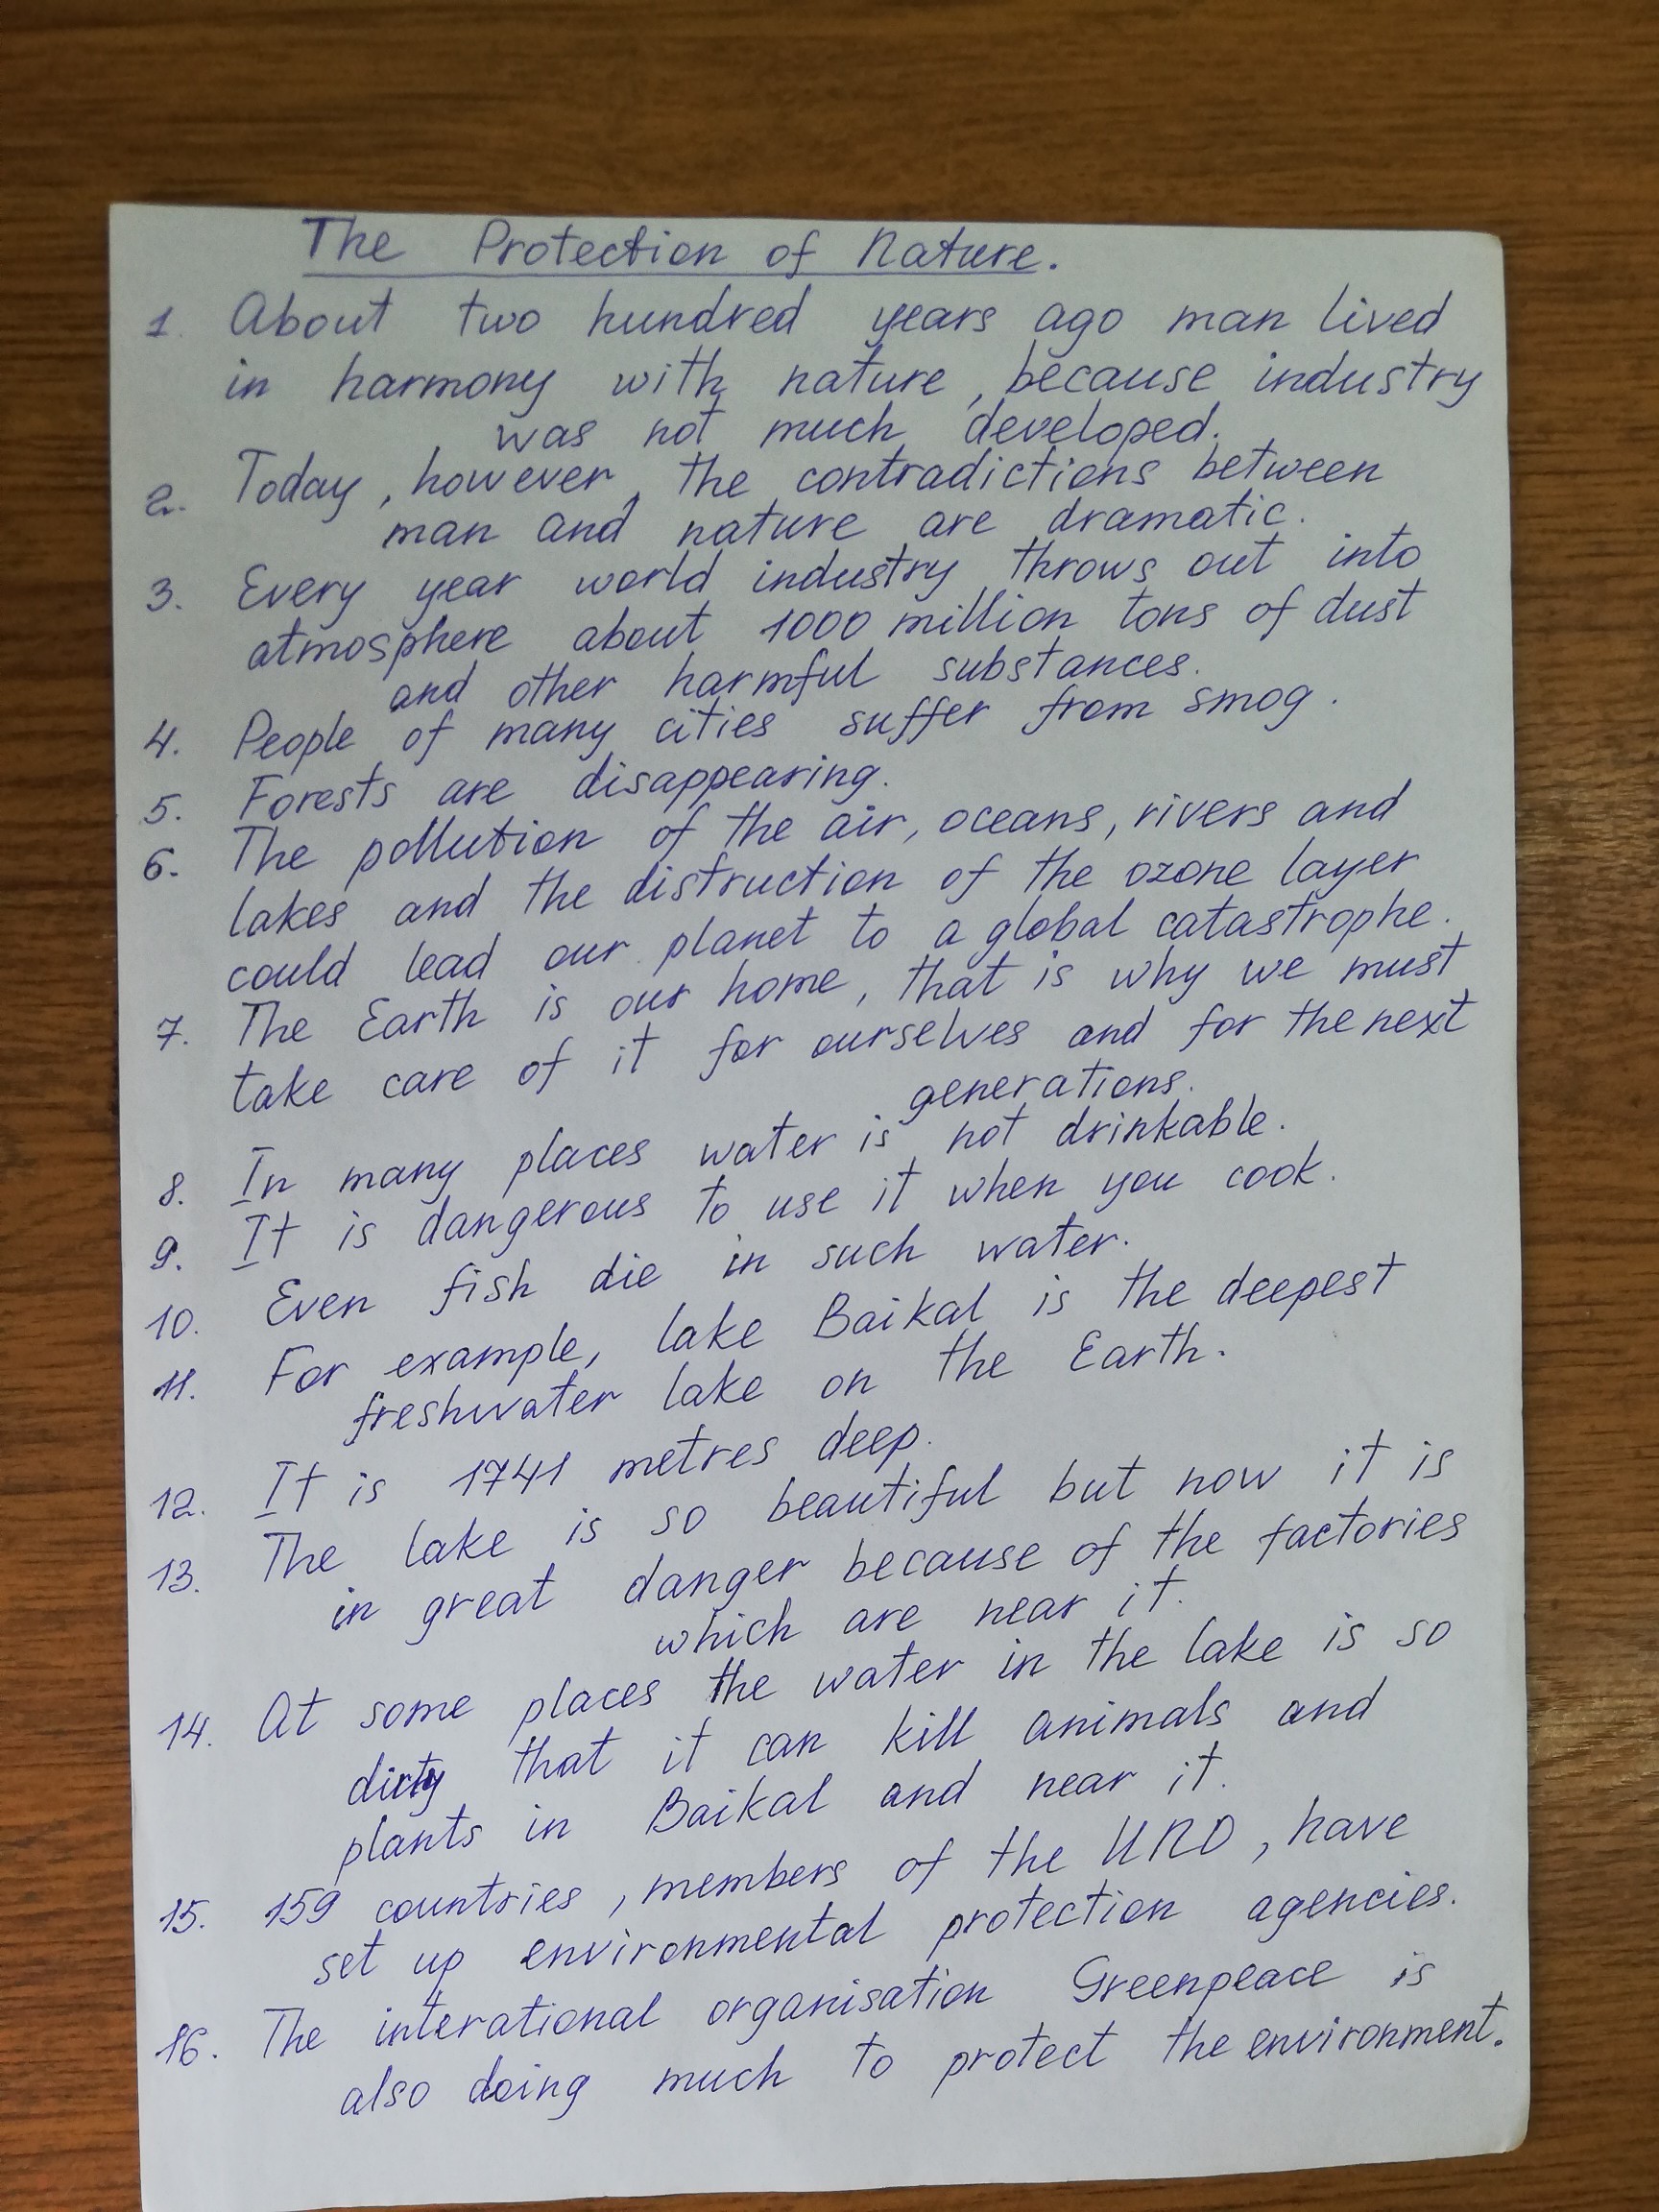 The Protection of Nature.
1. About two hundred years ago man lived
in harmony with nature, because industry
was not much developed.
2. Today, however, the contradictions between
man and nature are dramatic.
3. Every year world industry throws out into
atmosphere about 1000 million tons of dust
and other harmful substances.
4. People of many cities suffer from smog.
5. Forests are disappearing.
6. The pollution of the air, oceans, rivers and
lakes and the distruction of the ozone layer
could lead our planet to a global catastrophe.
7. The Earth is our home, that is why we must
take care of it for ourselves and for the next
generations.
8. In many places water is not drinkable.
9. It is dangerous to use it when you cook.
10. Even fish die in such water.
11. For example, lake Baikal is the deepest
freshwater lake on the Earth.
12. It is 1741 metres deep.
13. The lake is so beautiful but now it is
in great danger because of the factories
which are near it.
14. At some places the water in the lake is so
dirty that it can kill animals and
plants in Baikal and near it.
15. 159 countries, members of the UNO, have
set up environmental protection agencies.
16. The interational organisation Greenpeace is
also doing much to protect the environment.